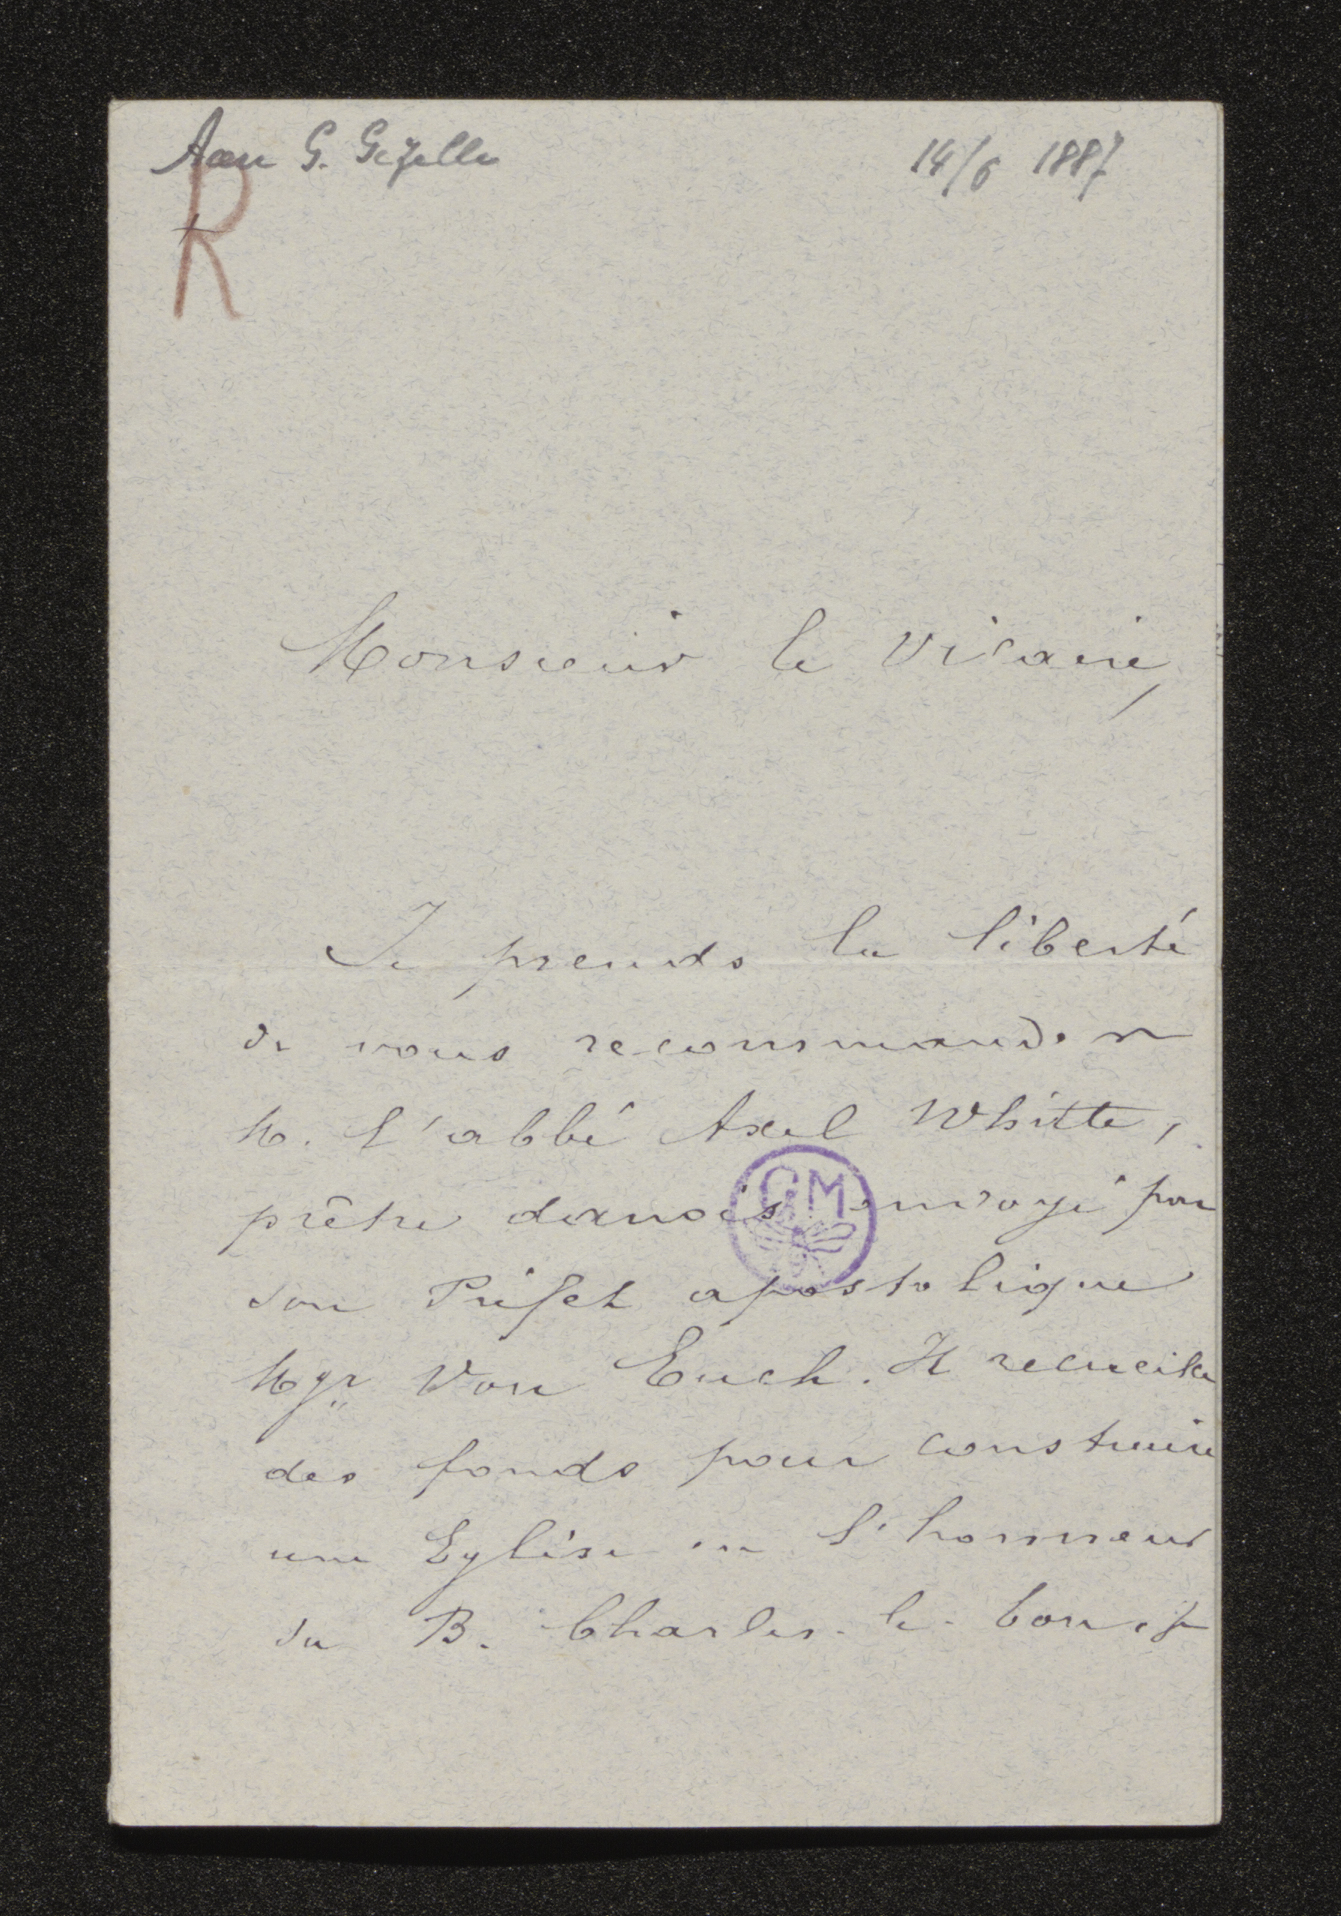 Aan G. Gezelle 14/6 1887
R
Monsieur le Vicaire,
Je prends la liberté
de vous recommander
M. l'abbé Axel Whitte,
prêtre danois envoyé par
son Préfet apostolique
Mgr Von Euch. Il recueille
des fonds pour construire
une Eglise en l'honneur
du B. Charles-le-bon, et je
GM